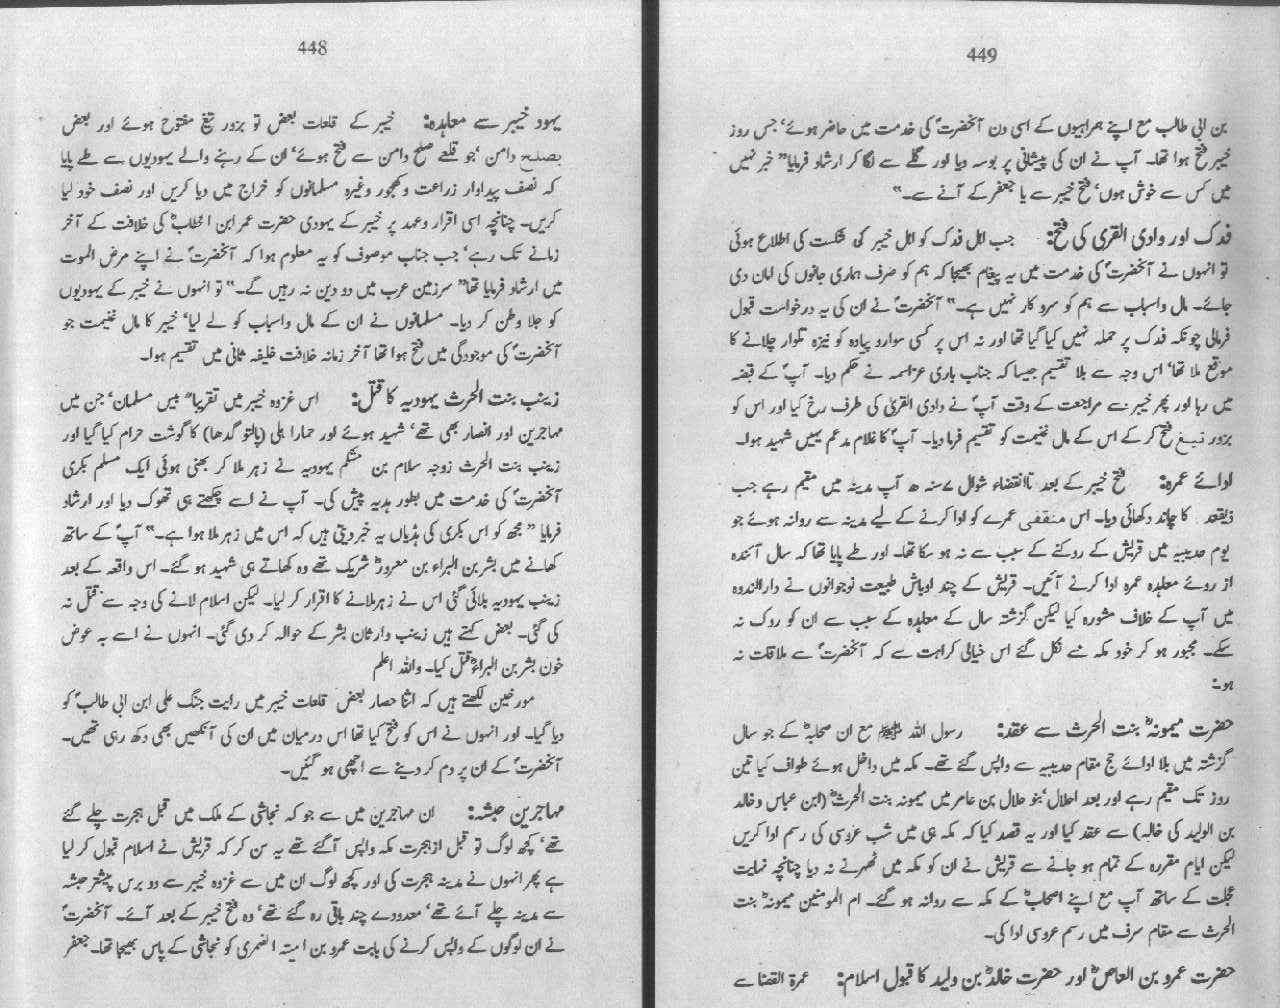 448
یہود خیبر سے معاہدہ: خیبر کے قلعات بعض تو بزور تیغ مفتوح ہوئے اور بعض
بصلح دامن ‘جو قلعے صلح دامن سے فتح ہوئے‘ ان کے رہنے والے یہودیوں سے طے پایا
کہ نصف پیداوار زراعت وکھجور وغیرہ مسلمانوں کو خراج میں دیا کریں اور نصف خود لیا
کریں۔ چنانچہ اسی اقرار وعہد پر خیبر کے یہودی حضرت عمر ابن الخطابؓ کی خلافت کے آخر
زمانے تک رہے‘ جب جناب موصوف کو یہ معلوم ہوا کہ آنحضرتؐ نے اپنے مرض الموت
میں ارشاد فرمایا تھا” سرزمین عرب میں دو دین نہ رہیں گے۔“ تو انہوں نے خیبر کے یہودیوں
کو جلا وطن کر دیا۔ مسلمانوں نے ان کے مال واسباب کو لے لیا‘ خیبر کا مال غنیمت جو
آنحضرتؐ کی موجودگی میں فتح ہوا تھا آخر زمانہ خلافت خلیفہ ثانی میں تقسیم ہوا۔
زینب بنت الحرث یہودیہ کا قتل: اس غزوہ خیبر میں تقریباً بیس مسلمان‘ جن میں
مہاجرین اور انصار بھی تھے‘ شہید ہوئے اور حمارا ہلی (پالتو گدھا) کا گوشت حرام کیا گیا اور
زینب بنت الحرث زوجہ سلام بن مشکم یہودیہ نے زہر ملا کر بھنی ہوئی ایک مسلم بکری
آنحضرتؐ کی خدمت میں بطور ہدیہ پیش کی۔ آپ نے اسے چکھتے ہی تھوک دیا اور ارشاد
فرمایا ”مجھ کو اس بکری کی ہڈیاں یہ خبر دیتی ہیں کہ اس میں زہر ملا ہوا ہے۔“ آپؐ کے ساتھ
کھانے میں بشر بن البراء بن معرورؓ شریک تھے وہ کھاتے ہی شہید ہو گئے۔ اس واقعہ کے بعد
زینب یہودیہ بلائی گئی اس نے زہر ملانے کا اقرار کر لیا۔ لیکن اسلام لانے کی وجہ سے قتل نہ
کی گئی۔ بعض کہتے ہیں زینب وارثان بشر کے حوالہ کر دی گئی۔ انہوں نے اسے بہ عوض
خون بشر بن البراءؓ قتل کیا۔ واللہ اعلم
مورخین لکھتے ہیں کہ اثنا حصار بعض قلعات خیبر میں رایت جنگ علی ابن ابی طالبؓ کو
دیا گیا۔ اور انہوں نے اس کو فتح کیا تھا اس درمیان میں ان کی آنکھیں بھی دکھ رہی تھیں۔
آنحضرتؐ کے ان پر دم کر دینے سے اچھی ہو گئیں۔
مہاجرین حبشہ: ان مہاجرین میں سے جو کہ نجاشی کے ملک میں قبل ہجرت چلے گئے
تھے‘ کچھ لوگ تو قبل ازہجرت مکہ واپس آ گئے تھے یہ سن کر کہ قریش نے اسلام قبول کر لیا
ہے پھر انہوں نے مدینہ ہجرت کی اور کچھ لوگ ان میں سے غزوہ خیبر سے دو برس پیشتر حبشہ
سے مدینہ چلے آئے تھے‘ معدودے چند باقی رہ گئے تھے‘ وہ فتح خیبر کے بعد آئے۔ آنحضرتؐ
نے ان لوگوں کے واپس کرنے کی بابت عمرو بن امیتہ الضمری کو نجاشی کے پاس بھیجا تھا۔ جعفر
449
بن ابی طالب مع اپنے ہمراہیوں کے اسی دن آنحضرتؐ کی خدمت میں حاضر ہوئے‘ جس روز
خیبر فتح ہوا تھا۔ آپ نے ان کی پیشانی پر بوسہ دیا اور گلے سے لگا کر ارشاد فرمایا” خبر نہیں
میں کس سے خوش ہوں‘ فتح خیبر سے یا جعفر کے آنے سے۔“
فدک اور وادی القری کی فتح: جب اہل فدک کو اہل خیبر کی شکست کی اطلاع ہوئی
تو انہوں نے آنحضرتؐ کی خدمت میں یہ پیغام بھیجا کہ ہم کو صرف ہماری جانوں کی امان دی
جائے۔ مال واسباب سے ہم کو سروکار نہیں ہے۔“ آنحضرتؐ نے ان کی یہ درخواست قبول
فرمالی چونکہ فدک پر حملہ نہیں کیا گیا تھا اور نہ اس پر کسی سوار و پیادہ کو نیزہ تلوار چلانے کا
موقع ملا تھا‘ اس وجہ سے بلا تقسیم جیسا کہ جناب باری عزاسمہ نے حکم دیا۔ آپؐ کے قبضہ
میں رہا اور پھر خیبر سے مراجعت کے وقت آپؐ نے وادی القریٰ کی طرف رخ کیا اور اس کو
بزور تیغ فتح کر کے اس کے مال غنیمت کو تقسیم فرما دیا۔ آپؐ کا غلام مدعم یہیں شہید ہوا۔
ادائے عمرہ: فتح خیبر کے بعد تاانقضاء شوال ۷سنہ ھ آپ مدینہ میں مقیم رہے جب
ذیقعد کا چاند دکھائی دیا۔ اس منقضی عمرے کو ادا کرنے کے لیے مدینہ سے روانہ ہوئے جو
یوم حدیبیہ میں قریش کے روکنے کے سبب سے نہ ہو سکا تھا۔ اور طے پایا تھا کہ سال آئندہ
از روئے معاہدہ عمرہ ادا کرنے آئیں۔ قریش کے چند اوباش طبیعت نوجوانوں نے دارالندوہ
میں آپ کے خلاف مشورہ کیا لیکن گزشتہ سال کے معاہدہ کے سبب سے ان کو روک نہ
سکے۔ مجبور ہو کر خود مکہ سے نکل گئے اس خیالی کراہت سے کہ آنحضرتؐ سے ملاقات نہ
ہو۔
حضرت میمونہؓ بنت الحرث سے عقد: رسول اللہ ﷺ مع ان صحابہؓ کے جو سال
گزشتہ میں بلا ادائے حج مقام حدیبیہ سے واپس گئے تھے۔ مکہ میں داخل ہوئے طواف کیا تین
روز تک مقیم رہے اور بعد احلال‘ بنو حلال بن عامر میں میمونہ بنت الحرثؓ (ابن عباس وخالد
بن الولید کی خالہ) سے عقد کیا اور یہ قصد کیا کہ مکہ ہی میں شب عروسی کی رسم ادا کریں
لیکن ایام مقررہ کے تمام ہو جانے سے قریش نے ان کو مکہ میں ٹھہرنے نہ دیا چنانچہ نہایت
عجلت کے ساتھ آپ مع اپنے اصحابؓ کے مکہ سے روانہ ہو گئے۔ ام المومنین میمونہؓ بنت
الحرث سے مقام سرف میں رسم عروسی ادا کی۔
حضرت عمرو بن العاصؓ اور حضرت خالدؓ بن ولید کا قبول اسلام: عمرۃ القضا سے